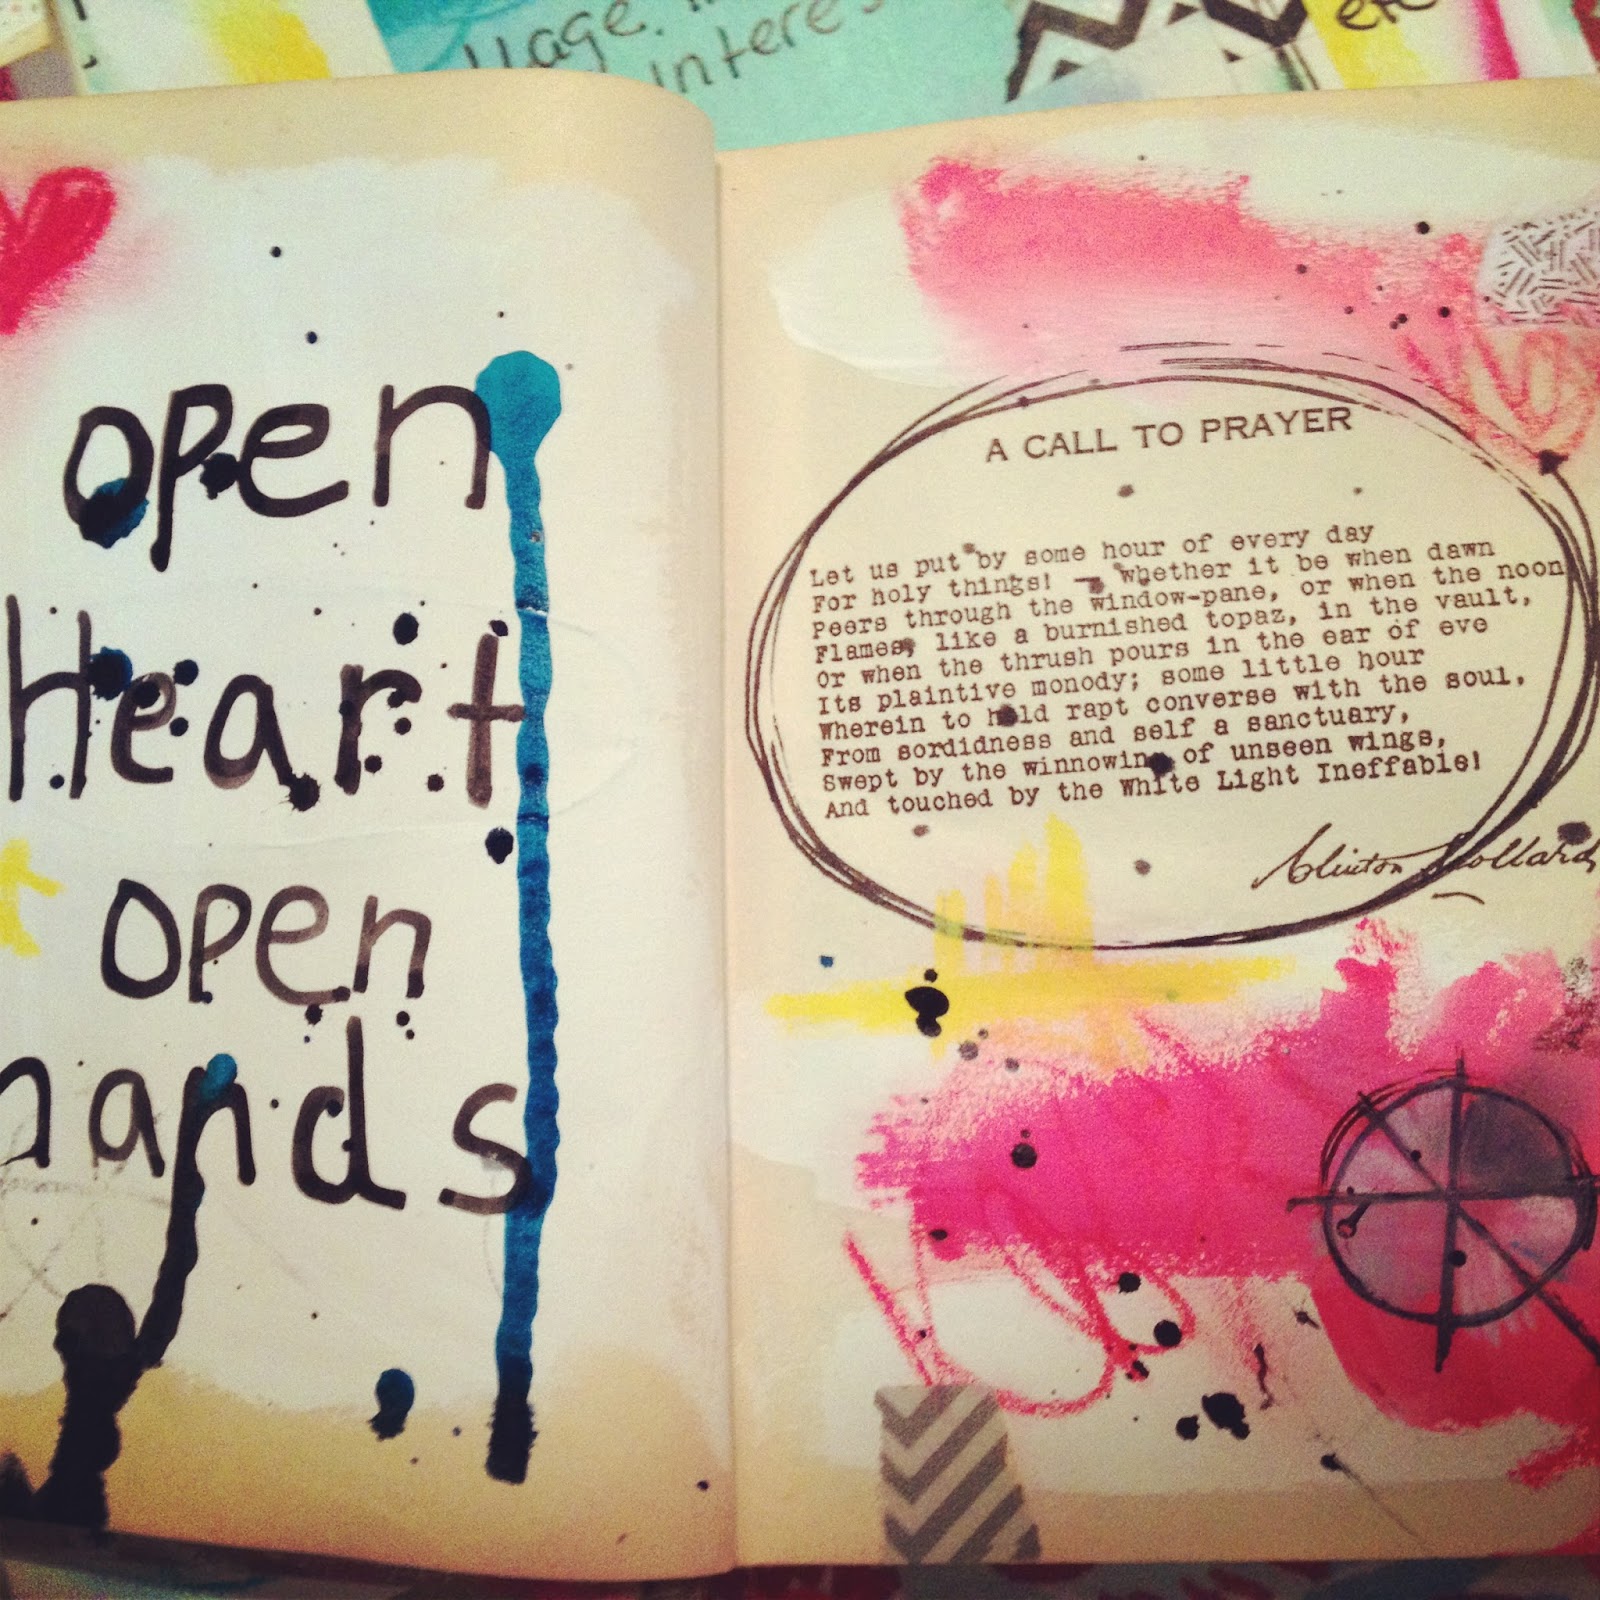 llage.
interes
etc
open
Heart
open
hands
A CALL TO PRAYER
Let us put by some hour of every day
For holy things! — whether it be when dawn
Peers through the window-pane, or when the noon
Flames, like a burnished topaz, in the vault,
Or when the thrush pours in the ear of eve
Its plaintive monody; some little hour
Wherein to hold rapt converse with the soul,
From sordidness and self a sanctuary,
Swept by the winnowing of unseen wings,
And touched by the White Light Ineffable!
Clinton Scollard